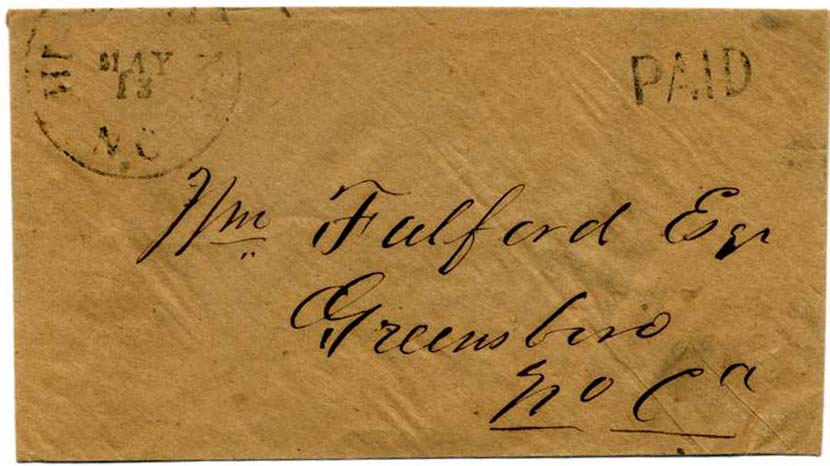 MAY
13
N.C
PAID
Wm Fulford Esqr
Greensboro
No Ca